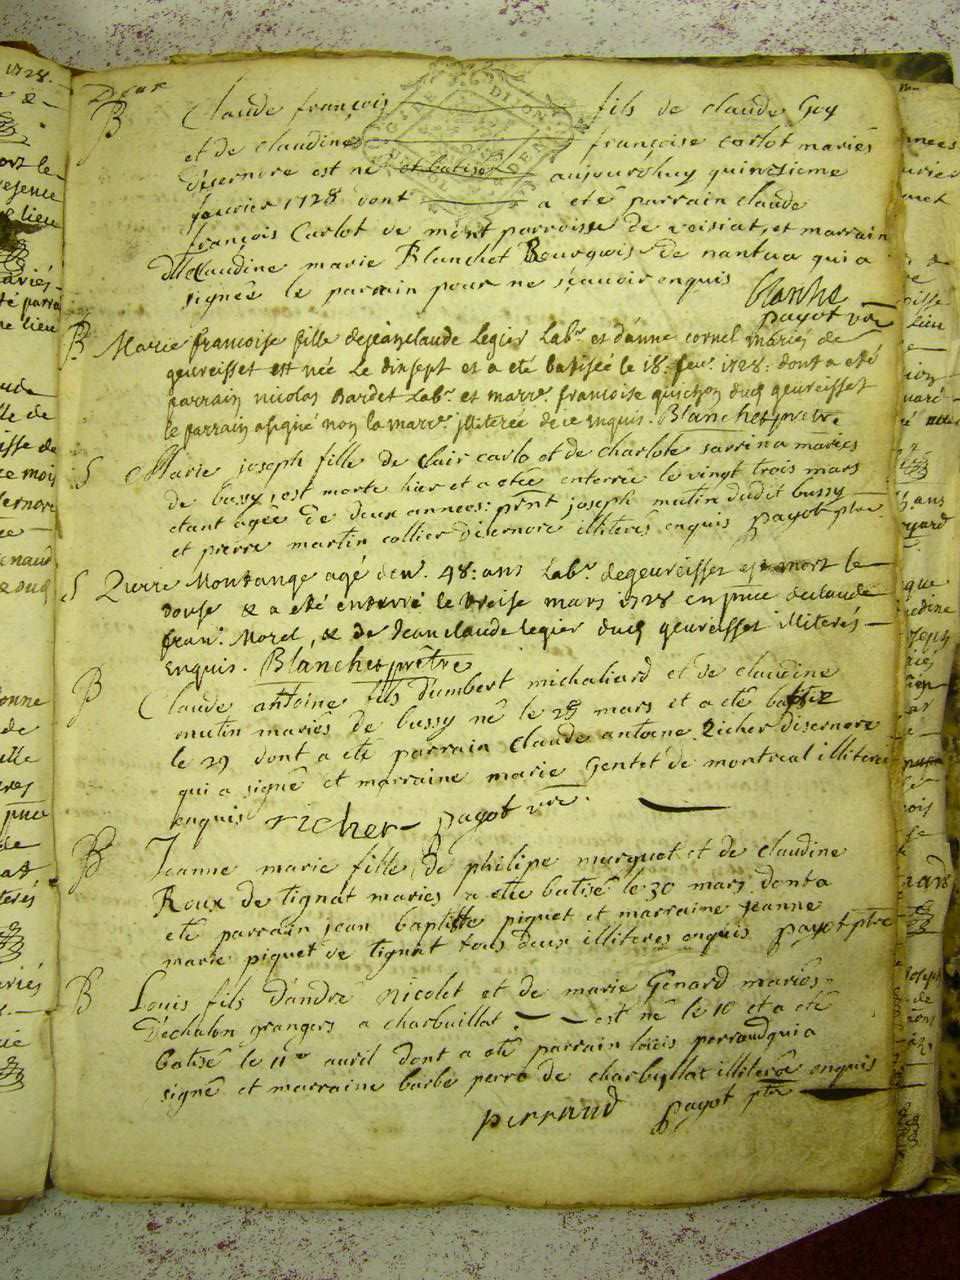 Deux
B Claude françois fils de claude Goy
et de claudine françoise carlot mariés
disernore est né et batisé aujourdhuy quinzieme
feurier 1728 dont a eté parrain claude
françois Carlot de mont parroisse de veisiat, et marrain
claudine marie Blanchet Bourgoise de nantua qui a
signée le parrain pour ne sçauoir enquis blanche
payot vre
B Marie francoise fille de jean claude Legier Labr. et danne cornel mariés de
geureisset est née Le dinsept et a eté batisée le 18: feur. 1728: dont a eté
parrain nicolas Bardet Labr. et marre. francoise guichon dud geureisset
le parrain a signé non la marre. jlliterée de ce enquis. Blanchet pretre
S Marie joseph fille de clair carlo et de charlote sarrina mariés
de bussy, est morte hier et a etée enterrée le vingt trois mars
etant agée de deux années: prnt joseph mutin dudit bussy
et pierre martin collier disernore illiterés enquis payot ptre
S Pierre Montange agé denv. 48: ans Labr. de geureisset est mort le
douse & a eté enterré le treise mars 1728 en pnce de claude
fran. Morel, & de Jean claude legier dud geureisset illiterés
enquis. Blanchet prêtre
B Claude antoine fils d'umbert michaliard et de claudine
mutin mariés de bussy né le 28 mars et a eté batisé
le 29 dont a eté parrain claude antoine Richer disernore
qui a signé et marraine marie Gentet de montreal illiterée
enquis richer payot vre.
B Jeanne marie fille de philipe murquet et de claudine
Roux de tignat mariés a eté batisé le 30 mars dont a
eté parrain jean baptiste piquet et marraine jeanne
marie piquet de tignat tous deux illiteres enquis payot ptre
B Louis fils d'andré nicolet et de marie Genard mariés
d'échalon grangers a charbuillat est né le 10 et a eté
batisé le 11me auril dont a eté parrain loüis perraud qui a
signé et marraine barbe perra de charbuillat illiterée enquis
perraud payot ptre